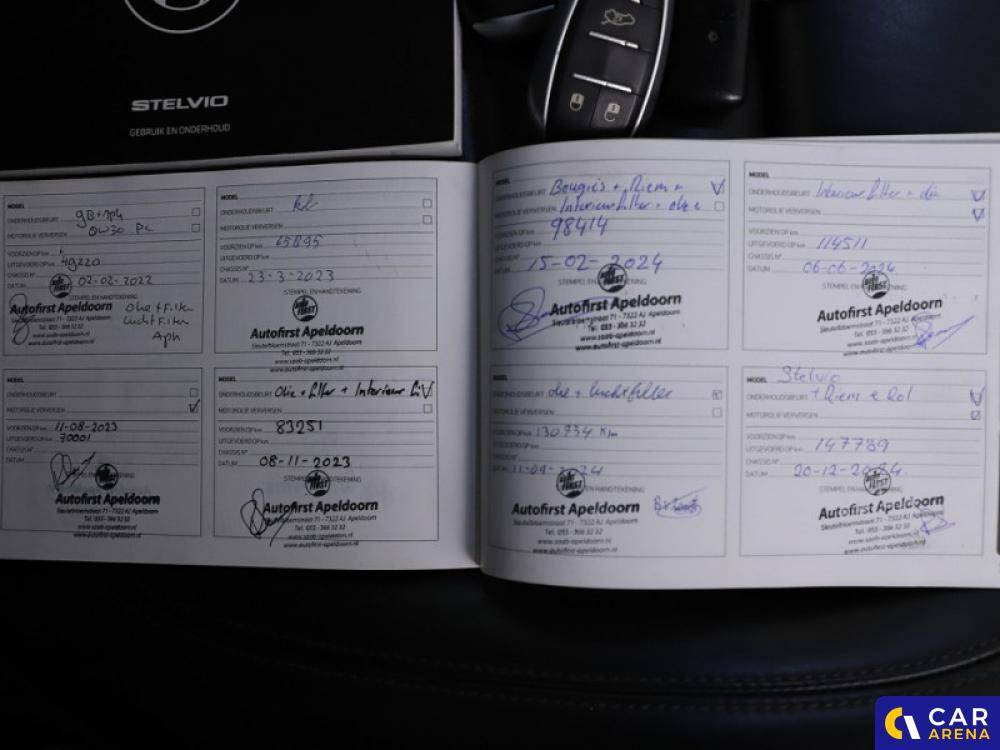 STELVIO
GEBRUIK EN ONDERHOUD
MODEL
ONDERHOUDSBEURT
MOTOROLIE VERVERSEN 0W30
VOORZIEN OP km
UITGEVOERD OP km 49220
CHASSIS N°
DATUM 02-02-2022
STEMPEL EN HANDTEKENING
Autofirst Apeldoorn
Sleutelbloemstraat 71 - 7322 AJ Apeldoorn
Tel. 055 - 366 32 32
www.saab-apeldoorn.nl
www.autofirst-apeldoorn.nl
Olie + Filter
Luchtfilter
Aph
MODEL
ONDERHOUDSBEURT
MOTOROLIE VERVERSEN
VOORZIEN OP km
UITGEVOERD OP km 65895
CHASSIS N°
DATUM 23-3-2023
STEMPEL EN HANDTEKENING
AUTO FIRST
Autofirst Apeldoorn
Sleutelbloemstraat 71 - 7322 AJ Apeldoorn
Tel. 055 - 366 32 32
www.saab-apeldoorn.nl
www.autofirst-apeldoorn.nl
MODEL
ONDERHOUDSBEURT
MOTOROLIE VERVERSEN
VOORZIEN OP km 11-08-2023
UITGEVOERD OP km 70001
CHASSIS N°
DATUM
STEMPEL EN HANDTEKENING
AUTO FIRST
Autofirst Apeldoorn
Sleutelbloemstraat 71 - 7322 AJ Apeldoorn
Tel. 055 - 366 32 32
www.saab-apeldoorn.nl
www.autofirst-apeldoorn.nl
MODEL
ONDERHOUDSBEURT Olie + filter + Interieur
MOTOROLIE VERVERSEN
VOORZIEN OP km 83251
UITGEVOERD OP km
CHASSIS N°
DATUM 08-11-2023
STEMPEL EN HANDTEKENING
AUTO FIRST
Autofirst Apeldoorn
Sleutelbloemstraat 71 - 7322 AJ Apeldoorn
Tel. 055 - 366 32 32
www.saab-apeldoorn.nl
www.autofirst-apeldoorn.nl
MODEL
ONDERHOUDSBEURT Bougies + Riem +
MOTOROLIE VERVERSEN Interieurfilter + olie
VOORZIEN OP km 98414
UITGEVOERD OP km
CHASSIS N°
DATUM 15-02-2024
STEMPEL EN HANDTEKENING
AUTO FIRST
Autofirst Apeldoorn
Sleutelbloemstraat 71 - 7322 AJ Apeldoorn
Tel. 055 - 366 32 32
www.saab-apeldoorn.nl
www.autofirst-apeldoorn.nl
MODEL
ONDERHOUDSBEURT Interieurfilter + olie
MOTOROLIE VERVERSEN
VOORZIEN OP km
UITGEVOERD OP km 114511
CHASSIS N°
DATUM 06-06-2024
STEMPEL EN HANDTEKENING
AUTO FIRST
Autofirst Apeldoorn
Sleutelbloemstraat 71 - 7322 AJ Apeldoorn
Tel. 055 - 366 32 32
www.saab-apeldoorn.nl
www.autofirst-apeldoorn.nl
MODEL
ONDERHOUDSBEURT olie + luchtfilter
MOTOROLIE VERVERSEN
VOORZIEN OP km 130734 Km
UITGEVOERD OP km
CHASSIS N°
DATUM 11-09-2024
STEMPEL EN HANDTEKENING
AUTO FIRST
Autofirst Apeldoorn
Sleutelbloemstraat 71 - 7322 AJ Apeldoorn
Tel. 055 - 366 32 32
www.saab-apeldoorn.nl
www.autofirst-apeldoorn.nl
MODEL Stelvio
ONDERHOUDSBEURT + Riem + Rol
MOTOROLIE VERVERSEN
VOORZIEN OP km
UITGEVOERD OP km 147739
CHASSIS N°
DATUM 20-12-2024
STEMPEL EN HANDTEKENING
AUTO FIRST
Autofirst Apeldoorn
Sleutelbloemstraat 71 - 7322 AJ Apeldoorn
Tel. 055 - 366 32 32
www.saab-apeldoorn.nl
www.autofirst-apeldoorn.nl
CAR
ARENA